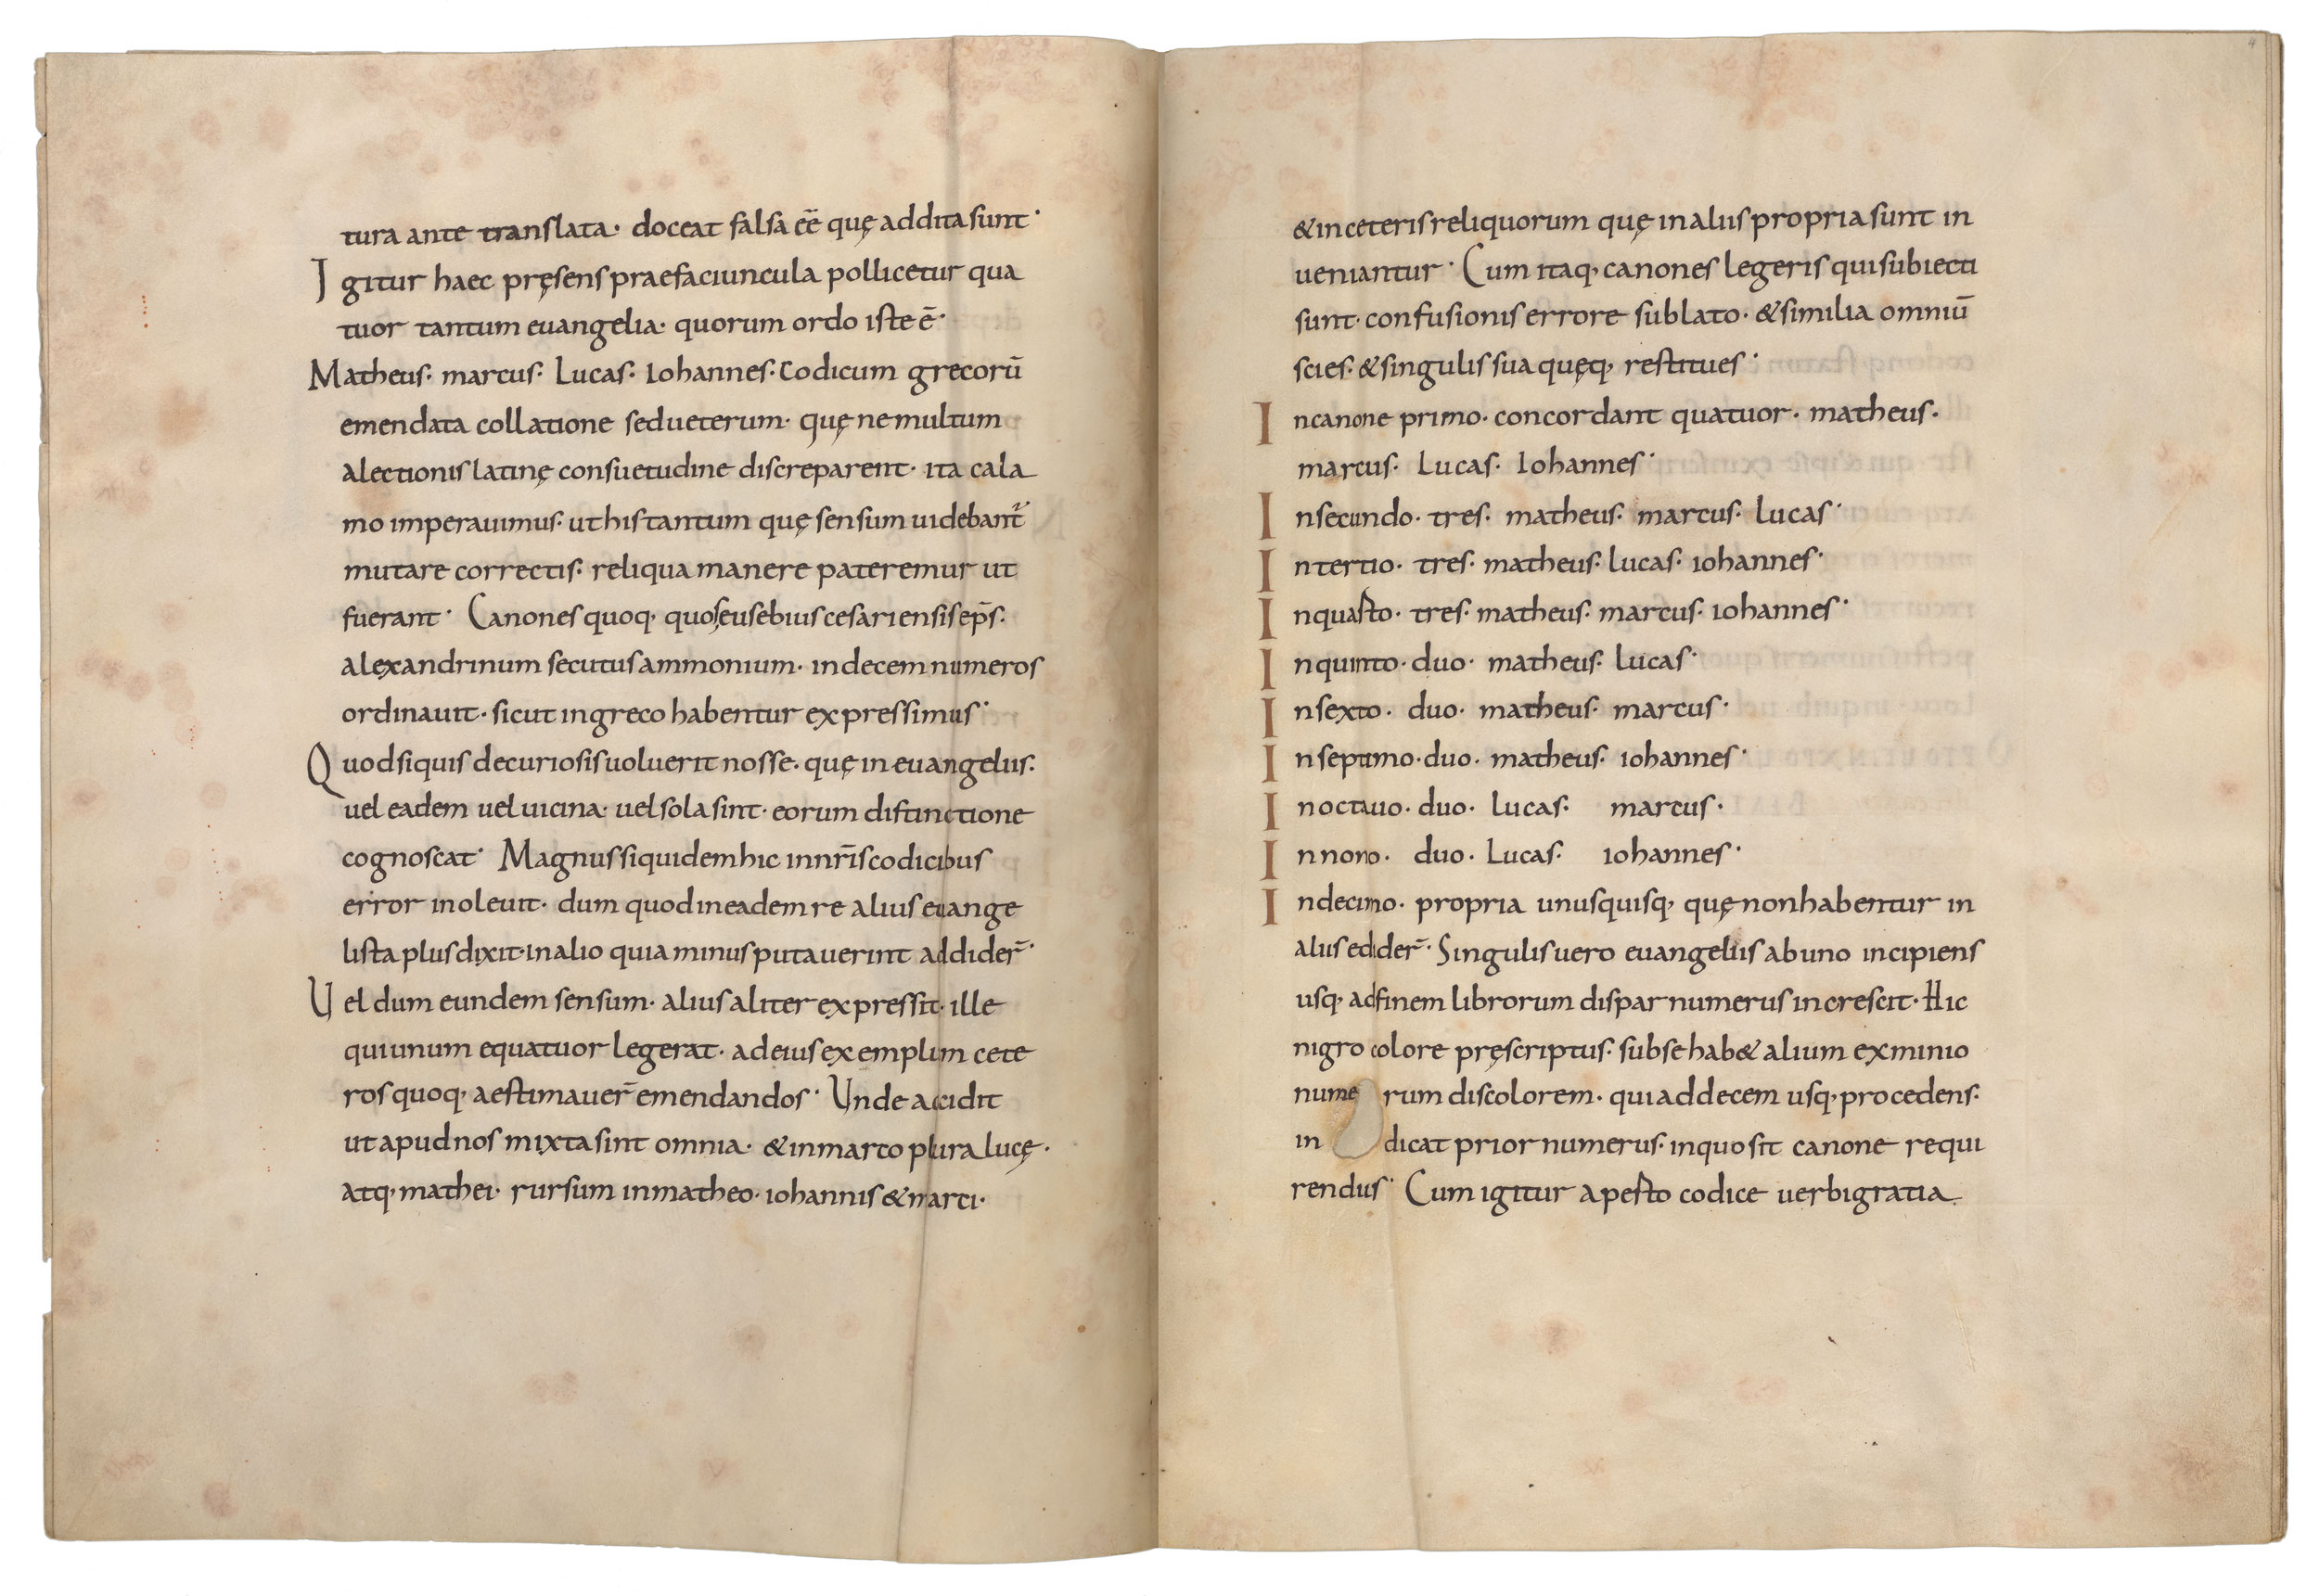 tura ante translata· doceat falsa eē quę addita sunt·
Igitur haec pręsens praefaciuncula pollicetur qua
tuor tantum euangelia· quorum ordo iste ē·
Matheus· marcus· Lucas· Iohannes· Codicum grecorū
emendata collatione sed ueterum· quę ne multum
a lectionis latinę consuetudine discreparent· ita cala
mo imperauimus· ut his tantum quę sensum uidebant᷑
mutare correctis· reliqua manere pateremur ut
fuerant· Canones quoq, quos eusebius cesariensis ep̄s·
alexandrinum secutus ammonium· in decem numeros
ordinauit· sicut in greco habentur expressimus·
Quod siquis de curiosis uoluerit nosse· quę in euangeliis·
uel eadem uel uicina· uel sola sint· eorum distinctione
cognoscat· Magnus siquidem hic in nr̄is codicibus
error inoleuit· dum quod in eadem re alius euange
lista plus dixit· in alio quia minus putauerint addider̄·
Uel dum eundem sensum· alius aliter expressit· ille
qui unum equatuor legerat· ad eius exemplum cete
ros quoq, aestimauer̄ emendandos· Unde accidit
ut apud nos mixta sint omnia· & in marco plura lucę·
atq, mathei· rursum in matheo· iohannis & marci·
& in ceteris reliquorum quę in aliis propria sunt in
ueniantur· Cum itaq, canones legeris qui subiecti
sunt· confusionis errore sublato· & similia omniū
scies· & singulis sua quęq, restitues·
In canone primo· concordant quatuor· matheus·
marcus· Lucas· Iohannes·
In secundo· tres· matheus· marcus· Lucas·
In tertio· tres· matheus· lucas· iohannes·
In quarto· tres· matheus· marcus· iohannes·
In quinto· duo· matheus· lucas·
In sexto· duo· matheus· marcus·
In septimo· duo· matheus· iohannes·
In octauo· duo· Lucas· marcus·
In nono· duo· Lucas· iohannes·
In decimo· propria unusquisq, quę non habentur in
aliis edider̄· Singulis uero euangeliis ab uno incipiens
usq, ad finem librorum dispar numerus increscit· Hic
nigro colore pręscriptus· sub se hab& alium ex minio
numerum discolorem· qui ad decem usq, procedens·
indicat prior numerus· in quo sit canone requi
rendus· Cum igitur aperto codice uerbi gratia